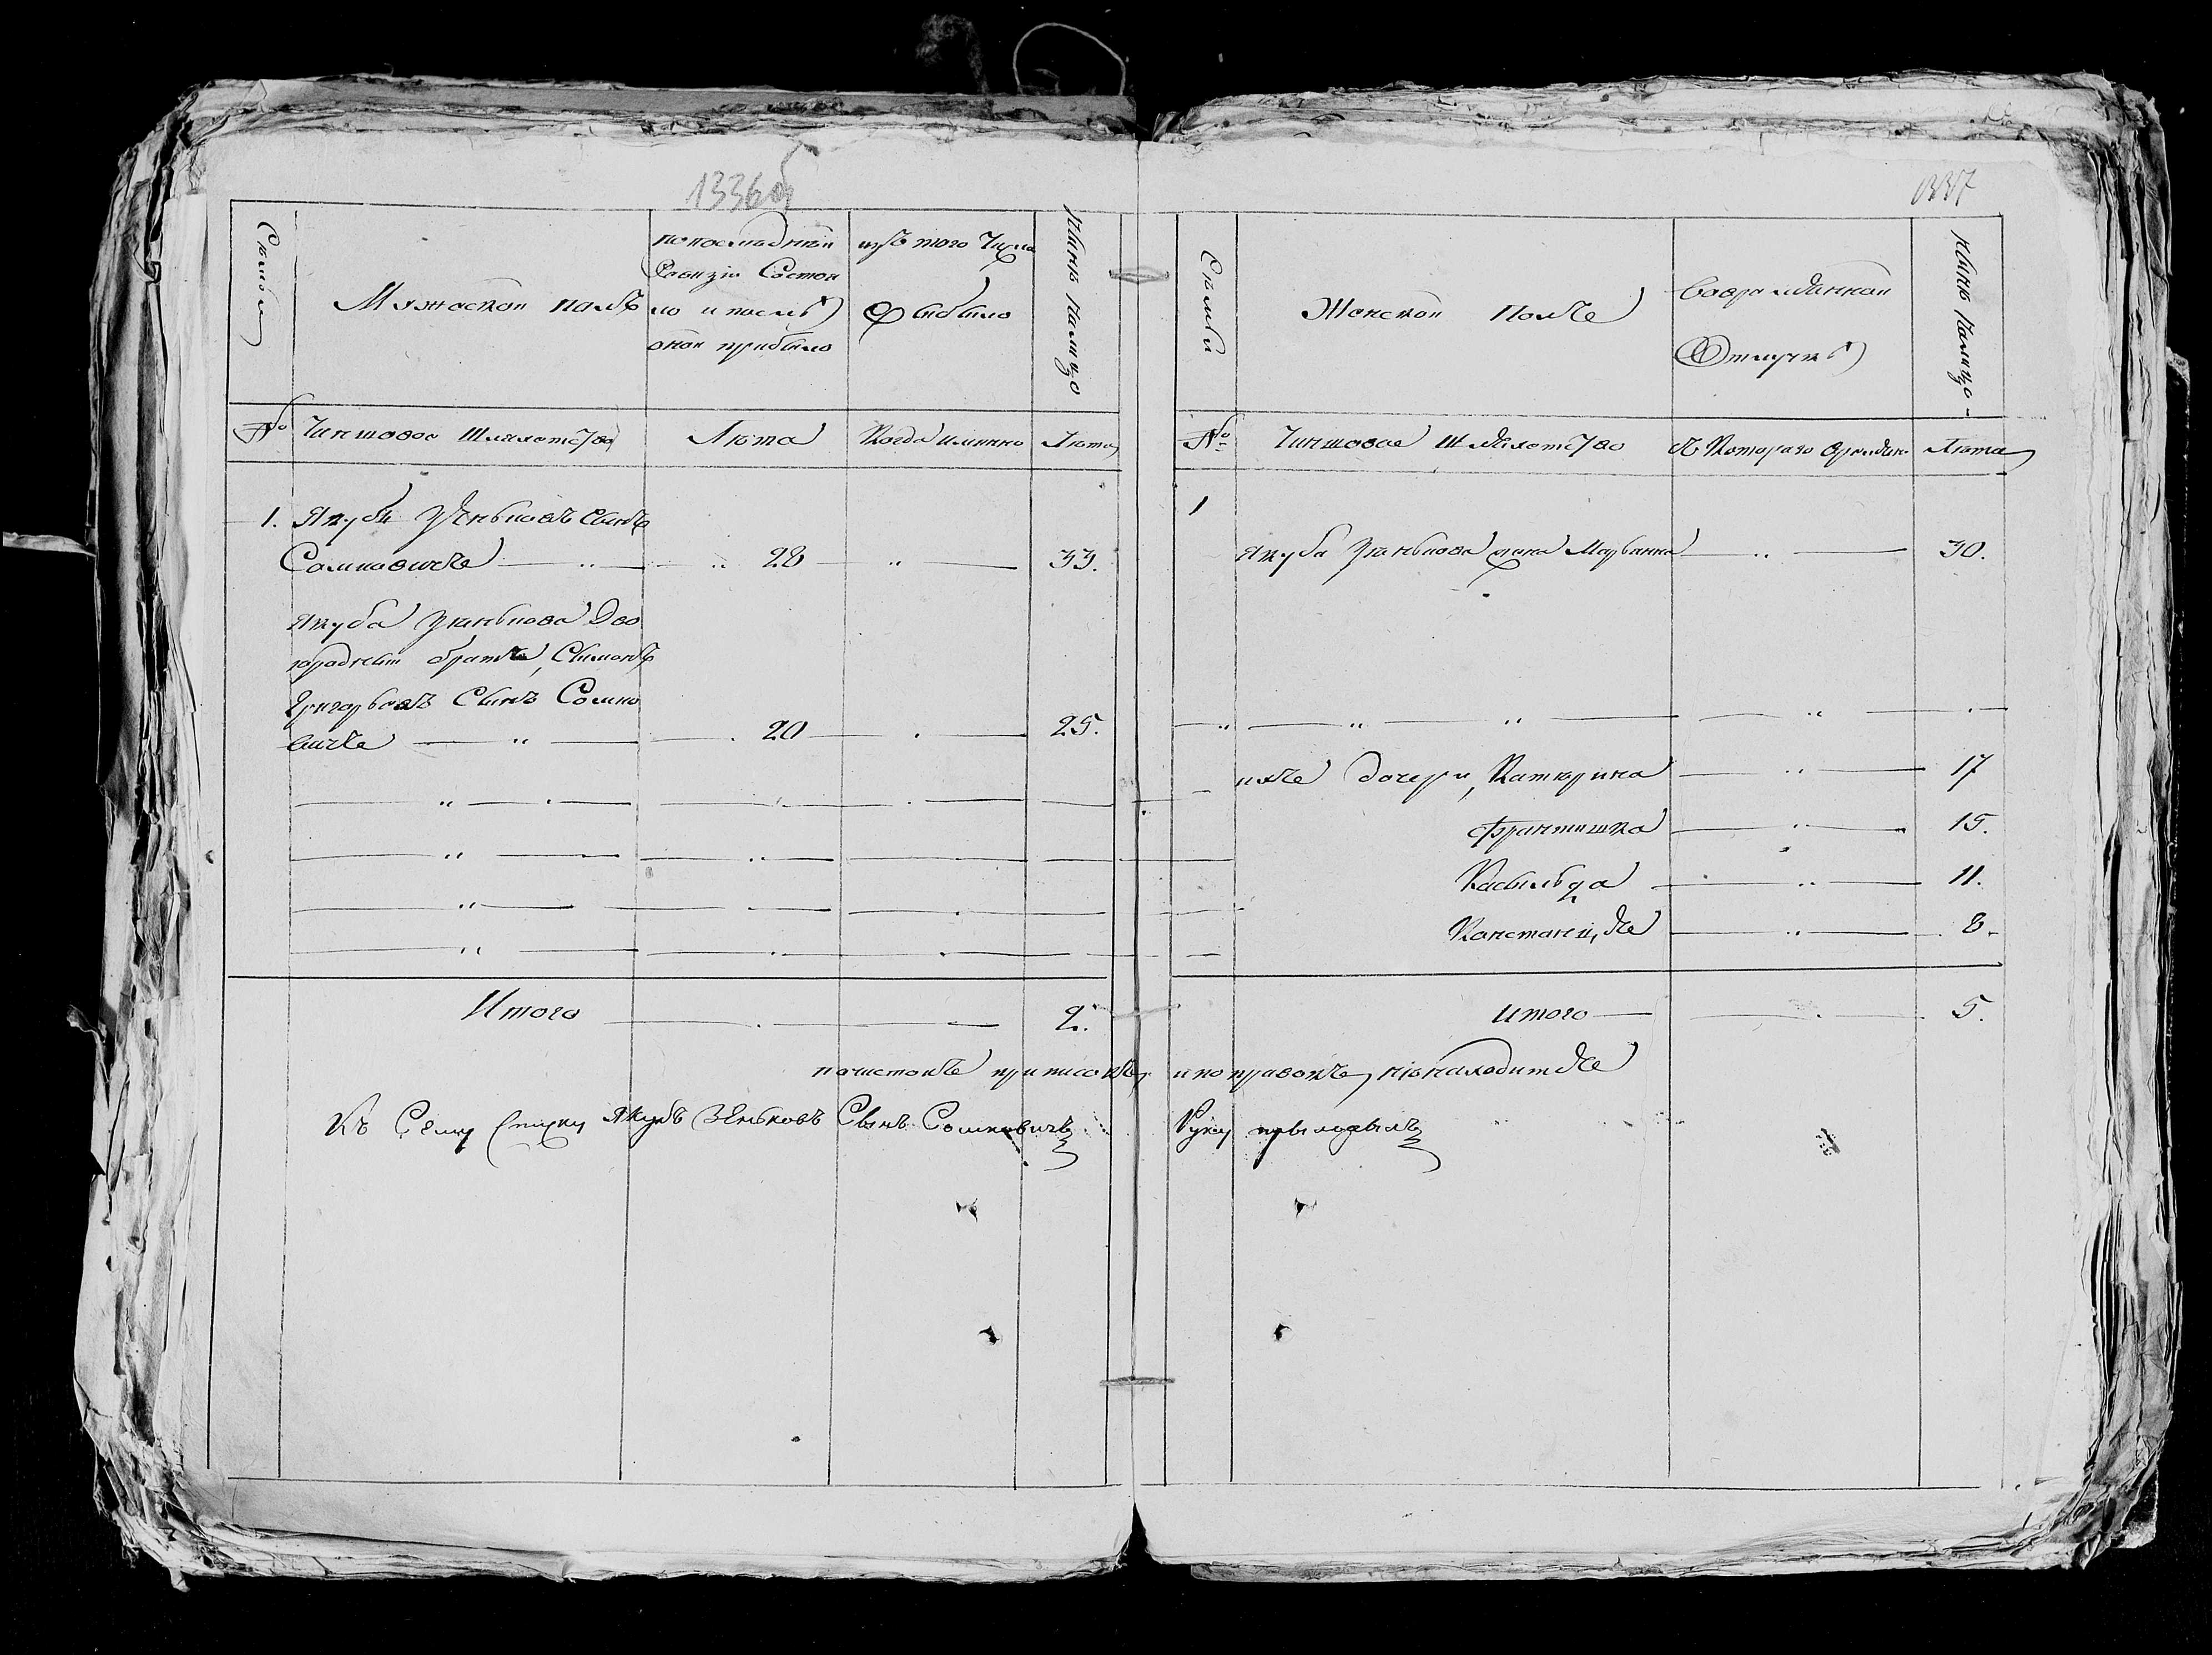 1336об
Семьи
Мужеской полъ
по последней
Ревизіи Состоя
ло и послѣ
оной прибыло
изъ того Числа
Выбыло
Нынѣ налицо
№ Чиншовое Шляхетство
Лѣта
Когда имянно
Лѣта
1. Якубъ Зѣньковъ Сынъ
Сомковичъ — 28 — 33.
Якуба Зѣнькова Дво
юродный братъ, Сымонъ
Григорьевъ Сынъ Сомко
вичъ — 20 — 25.
Итого — 2.
1337
Семьи
Женской Полъ
Во временной
Отлучкѣ
Нынѣ налицо
№ Чиншовое Шляхетство
Съ Котораго времени
Лѣта
1
Якуба Зѣнькова жена Марьянна — 30.
ихъ дочери, Катерина — 17
Францишка — 15.
Касыльда — 11.
Констанція — 8.
Итого — 5.
почистокъ приписокъ и поправокъ не находится
Къ Сему Списку Якубъ Зеньковъ Сынъ Сомковичъ Руку прыложылъ